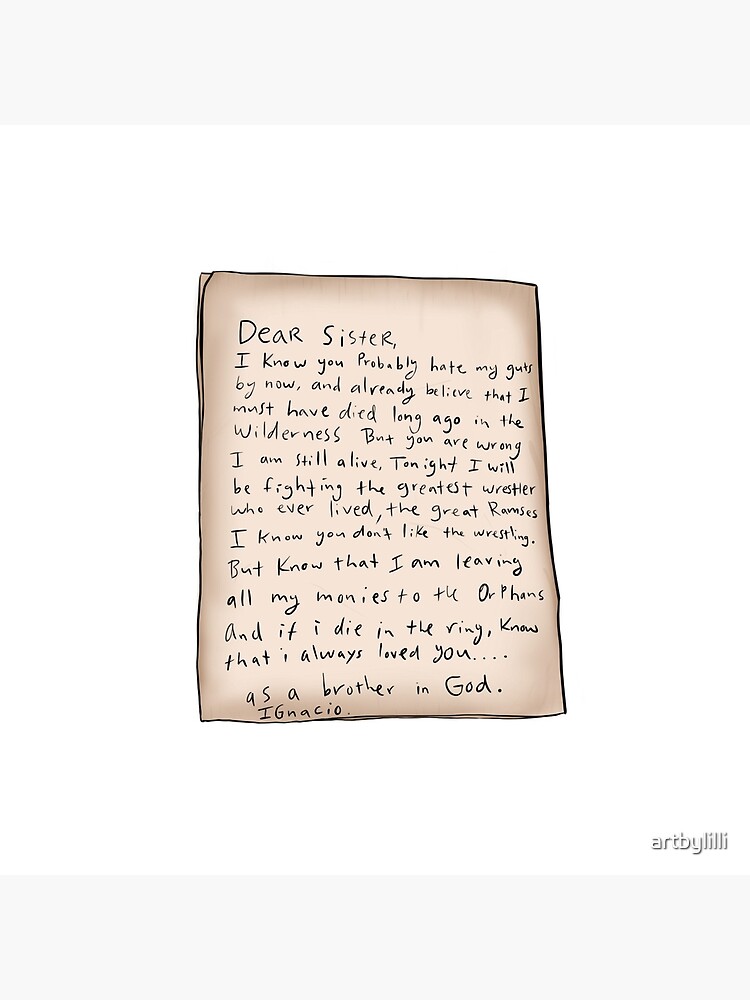 Dear Sister,
I Know you Probably hate my guts
by now, and already believe that I
must have died long ago in the
Wilderness But you are wrong
I am still alive, Tonight I will
be fighting the greatest wrestler
who ever lived, the great Ramses
I Know you don't like the wrestling.
But Know that I am leaving
all my monies to the Orphans
And if i die in the ring, Know
that i always loved you....
as a brother in God.
IGnacio.
artbylilli